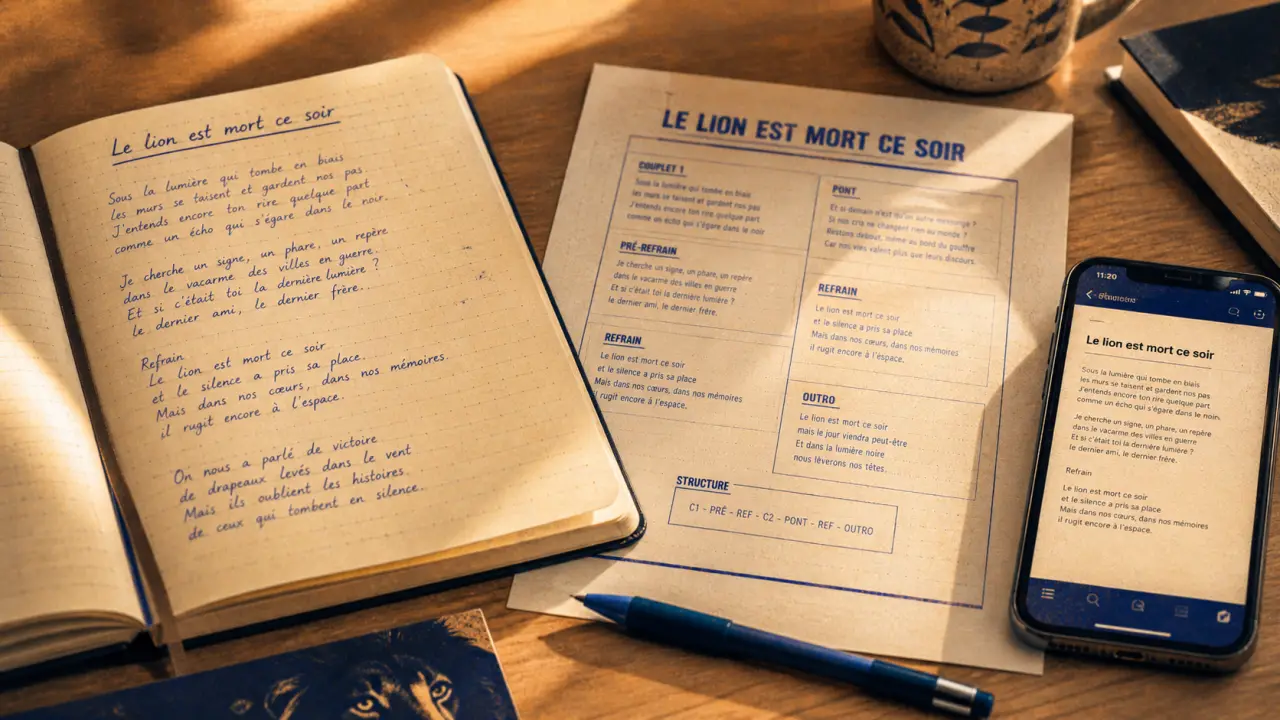 Le lion est mort ce soir
Sous la lumière qui tombe en biais
les murs se taisent et gardent nos pas.
J'entends encore ton rire quelque part
comme un écho qui s'égare dans le noir.
Je cherche un signe, un phare, un repère
dans le vacarme des villes en guerre.
Et si c'était toi la dernière lumière ?
le dernier ami, le dernier frère...
Refrain
Le lion est mort ce soir
et le silence a pris sa place.
Mais dans nos cœurs, dans nos mémoires.
il rugit encore à l'espace.
On nous a parlé de victoire
de drapeaux levés dans le vent
Mais ils oublient les histoires
de ceux qui tombent en silence.
LE LION EST MORT CE SOIR
COUPLET 1
Sous la lumière qui tombe en biais
les murs se taisent et gardent nos pas
J'entends encore ton rire quelque part
comme un écho qui s'égare dans le noir
PRÉ-REFRAIN
Je cherche un signe, un phare, un repère
dans le vacarme des villes en guerre
Et si c'était toi la dernière lumière ?
le dernier ami, le dernier frère.
REFRAIN
Le lion est mort ce soir
et le silence a pris sa place
Mais dans nos cœurs, dans nos mémoires
il rugit encore à l'espace.
PONT
Et si demain n'est qu'un autre mensonge ?
Si nos cris ne changent rien au monde ?
Restons debout, même au bord du gouffre
Car nos vies valent plus que leurs discours.
REFRAIN
Le lion est mort ce soir
et le silence a pris sa place
Mais dans nos cœurs, dans nos mémoires
il rugit encore à l'espace.
OUTRO
Le lion est mort ce soir
mais le jour viendra peut-être
Et dans la lumière noire
nous lèverons nos têtes.
STRUCTURE
C1 - PRÉ - REF - C2 - PONT - REF - OUTRO
11:20
Le lion est mort ce soir
Sous la lumière qui tombe en biais
les murs se taisent et gardent nos pas
J'entends encore ton rire quelque part
comme un écho qui s'égare dans le noir.
Je cherche un signe, un phare, un repère
dans le vacarme des villes en guerre.
Et si c'était toi la dernière lumière ?
le dernier ami, le dernier frère.
Refrain
Le lion est mort ce soir
et le silence a pris sa place.
Mais dans nos cœurs, dans nos mémoires
il rugit encore à l'espace.